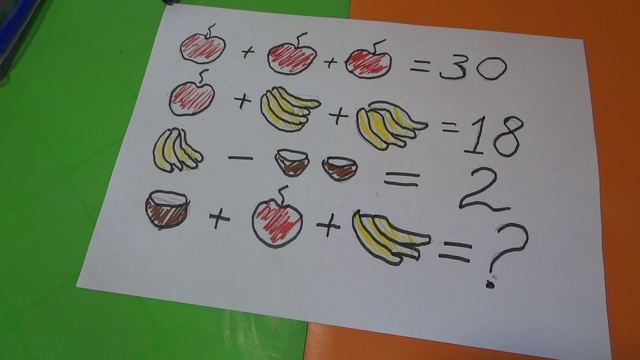 + + = 30
+ + = 18
- = 2
+ + = ?